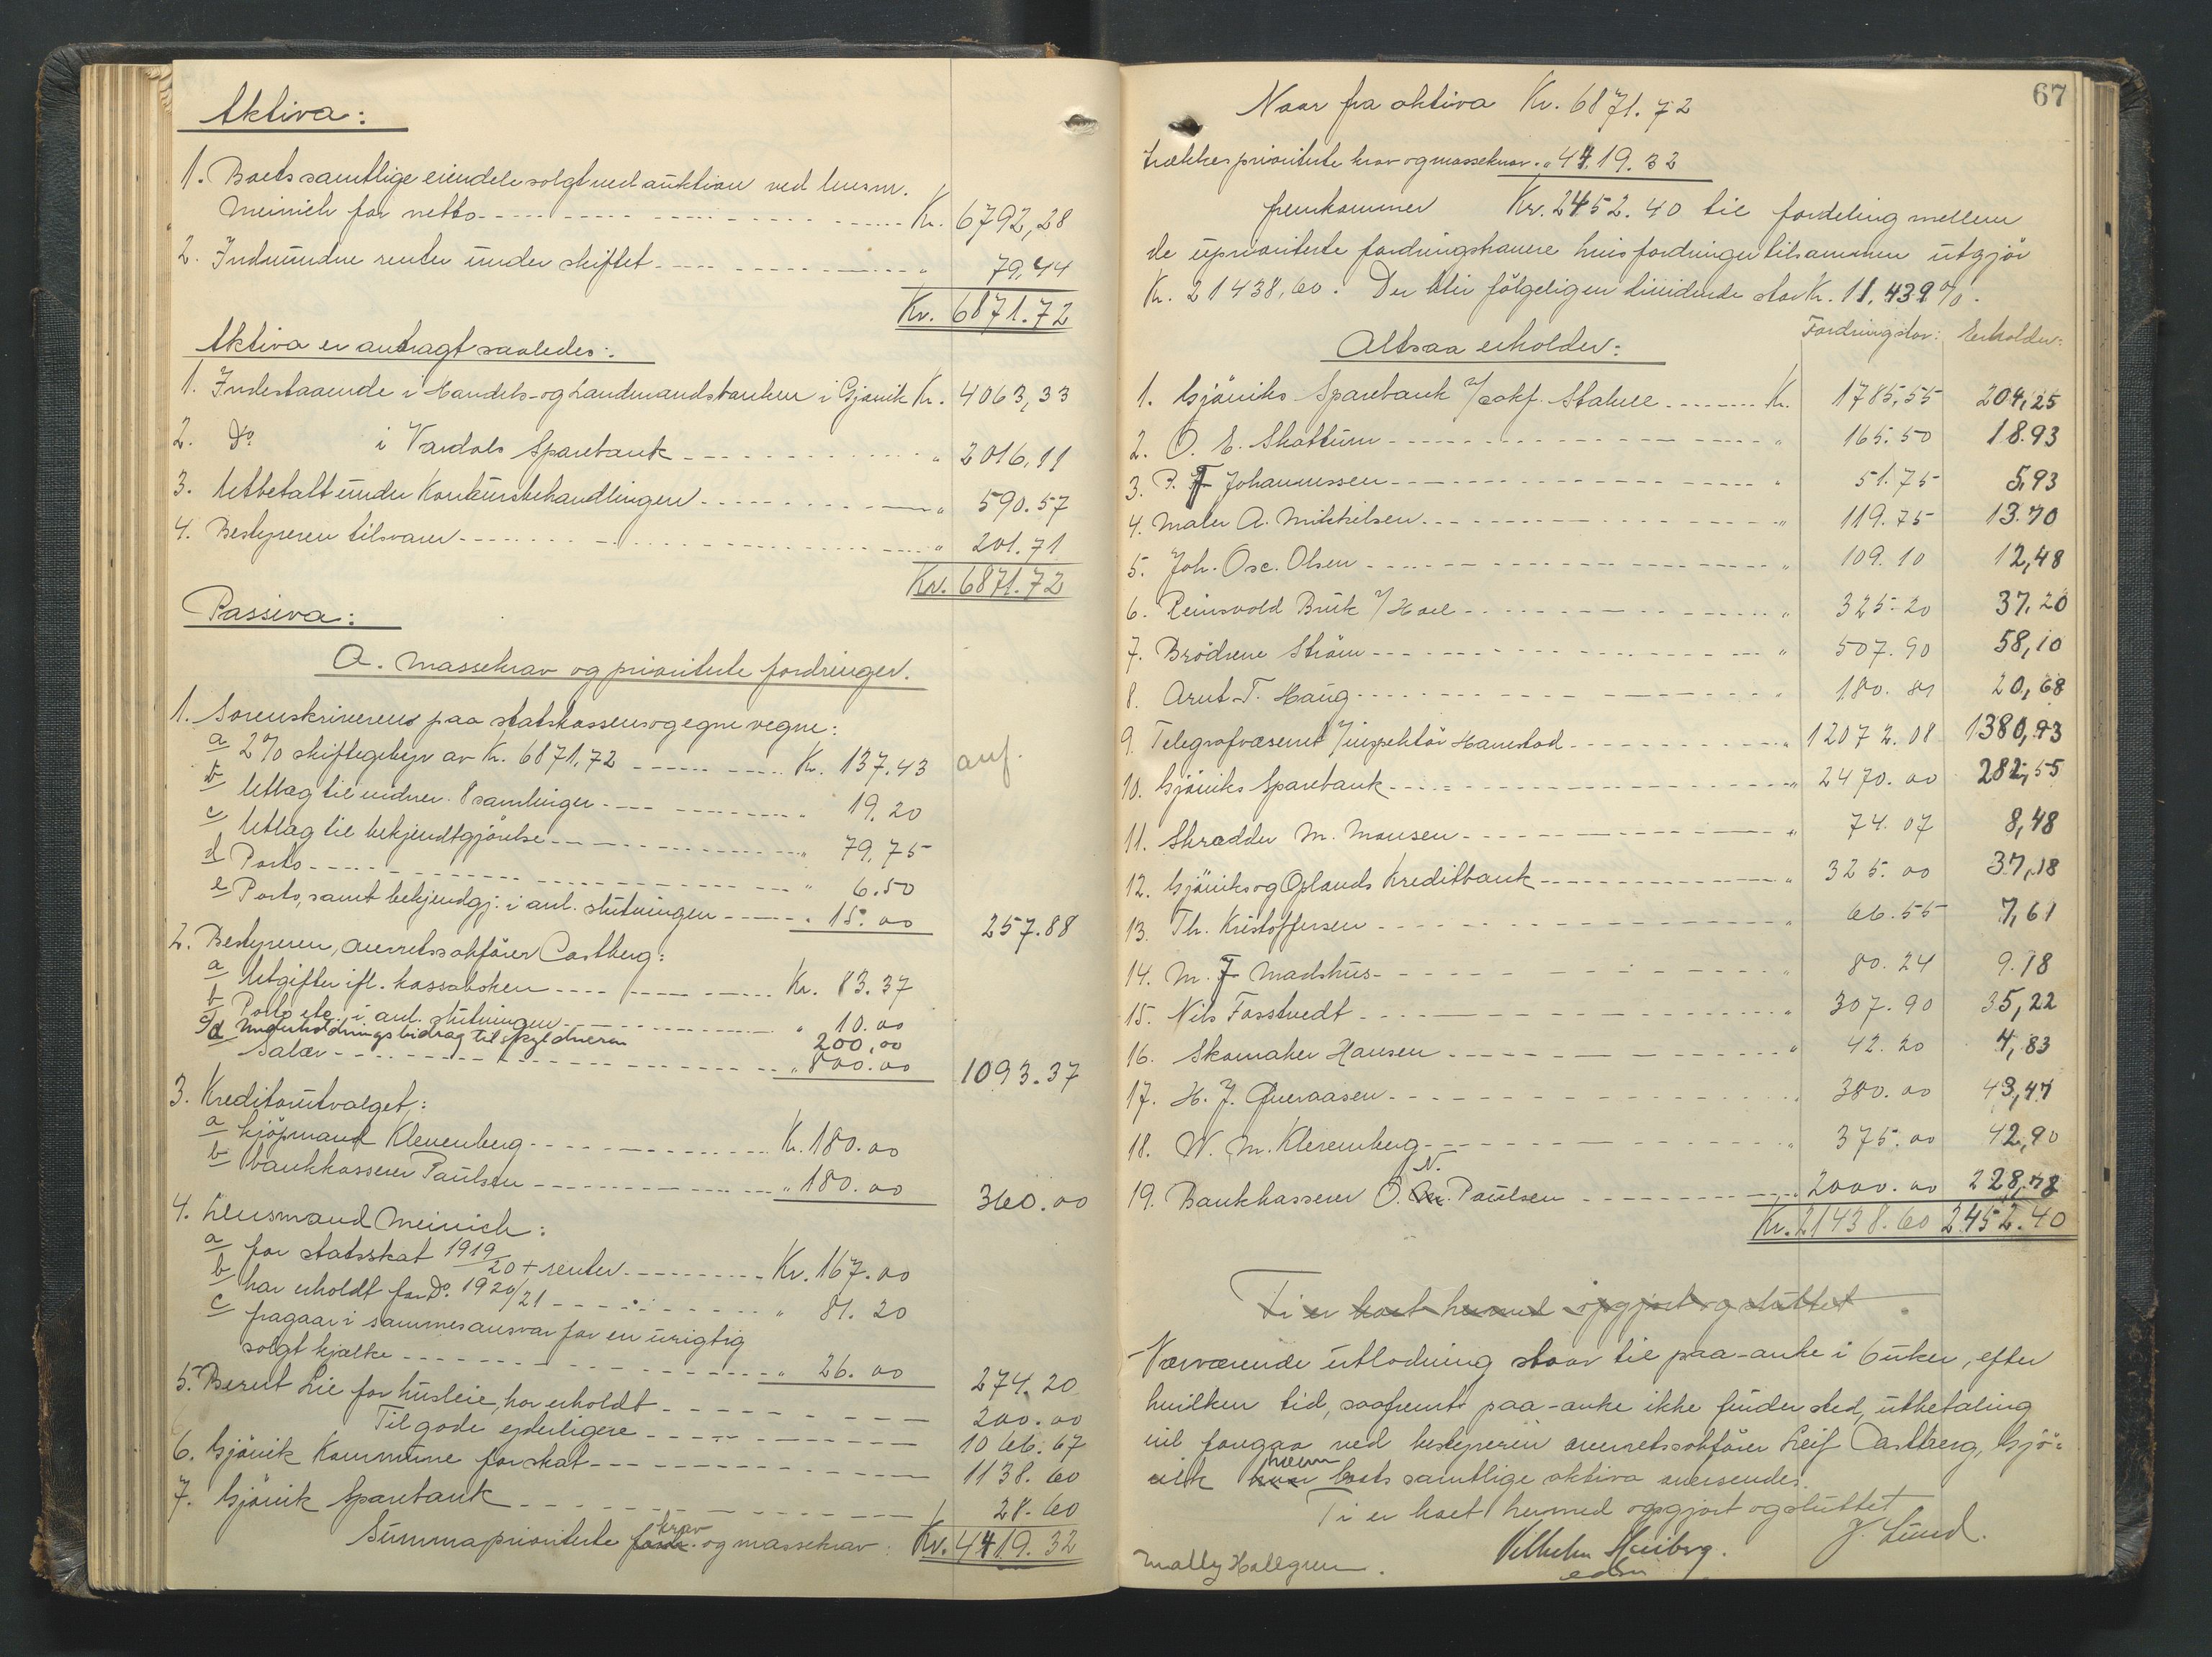 Aktiva:
1. Boets samtlige eiendele solgt ved auktion ved lensm.
Meinich for netto Kr. 6792,28
2. Indvundne renter under skiftet " 79,44
Kr. 6871.72
Aktiva er antragt saaledes:
1. Indestaaende i Handels- og Landmandsbanken i Gjøvik Kr. 4063,33
2. Do i Vardals Sparebank " 2016,11
3. Utbetalt under Konkursbehandlingen " 590.57
4. Bestyreren tilsvarer " 201.71
Kr. 6871.72
Passiva:
A. Massekrav og prioriterte fordringer.
1. Sorenskriveren paa statskassens og egne vegne:
a 2% skiftegebyr av Kr. 6871.72 Kr. 137.43 anf.
b Utlag til vidner. 8 samlinger " 19.20
c Utlag til bekjendtgjörelse " 79,75
d Porto " 6.50
e Porto, samt bekjendgj. i anl. slutningen " 15.00 257.88
2. Bestyreren, overretssakfører Castberg:
a Utgifter ifl. kassaboken Kr. 83.37
b Porto etc. i anl. slutningen " 10.00
c Underholdningsbidrag til skyldneren 200,00
d Salær " 800.00 1093.37
3. Kreditorutvalget:
a kjöpmand Klevenberg Kr. 180.00
b bankkasserer Paulsen " 180.00 360.00
4. Lensmand Meinich:
a for statsskat 1919/20 + renter Kr. 167.00
b har erholdt for Do. 1920/21 " 81.20
c fragaar i sammes ansvar for en urigtig
solgt kjælke " 26.00 274.20
5. Berut Lie for husleie, har erholdt 200.00
Tilgode yderligere 1066.67
6. Gjövik Kommune for skat 1138.60
7. Gjövik Sparebank 28.60
Summa prioriterte fordr. krav og massekrav: Kr. 4419.32
67
Naar fra aktiva Kr. 6871.72
trækkes prioriterte krav og massekrav " 4419.32
fremkommer Kr. 2452.40 til fordeling mellem
de uprioriterte fordringshavere hvis fordringer tilsammen utgjör
Kr. 21438,60. Der blir fölgelig en dividende stor Kr. 11,439%.
Altsaa erholder: Fordringshav: Erholder:
1. Gjöviks Sparebank v/ sakf. Stabell Kr. 1785,55 204,25
2. O. E. Skattum " 165.50 18.93
3. P. F Johannessen " 51.75 5,93
4. Maler A. Mikkelsen " 119.75 13.70
5. Joh. Osc. Olsen " 109.10 12,48
6. Reinsvold Bruk v/ Hoel " 325.20 37,20
7. Brödrene Ström " 507.90 58,10
8. Arnt T. Haug " 180.81 20,68
9. Telegrafvæsenet v/ inspektör Hamstad " 12072.08 1380,93
10. Gjöviks Sparebank " 2470.00 282,55
11. Skrædder M. Monsen " 74.07 8,48
12. Gjöviks og Oplands Kreditbank " 325.00 37,18
13. Th. Kristoffersen " 66.55 7,61
14. M. F Madshus " 80.24 9.18
15. Nils Fosstvedt " 307.90 35,22
16. Skomaker Hansen " 42.20 4,83
17. H. J. Gueraasen " 380.00 43,47
18. W. M. Klevenberg " 375.00 42,90
19. Bankkasserer O. M. N. Paulsen " 2000.00 228,78
Kr. 21438.60 2452.40
Ti er boet hermed opgjort og sluttet
Nærværende utlodning staar til paa-anke i 6 uker, efter
hvilken tid, saafremt paa-anke ikke finder sted, utbetaling
vil foregaa ved bestyreren overretssakfører Leif Castberg, Gjö-
vik hvor hvem boets samtlige aktiva oversendes.
Ti er boet hermed opgjort og sluttet
Vilhelm Heiberg. J. Lund.
Mally Hallgren. edsv